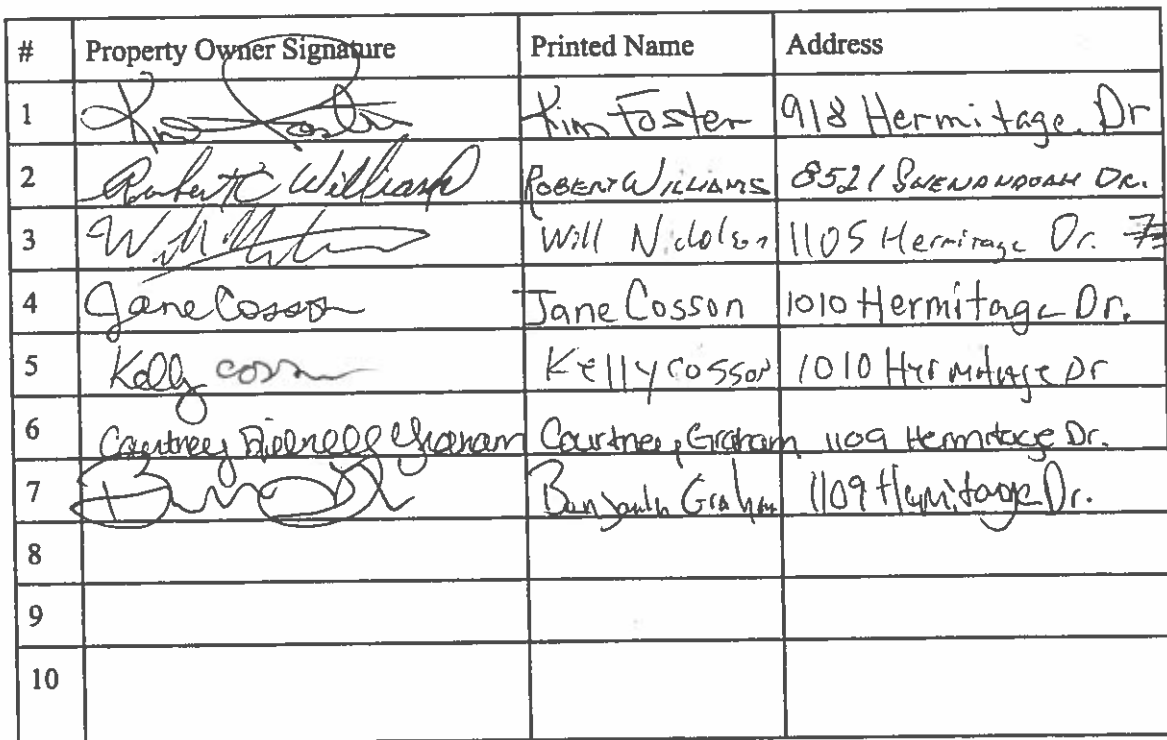 # Property Owner Signature Printed Name Address
1 Kim Foster Kim Foster 918 Hermitage Dr
2 Robert C Williams ROBERT WILLIAMS 8521 SHENANDOAH DR.
3 Will Will Nicholson 1105 Hermitage Dr.
4 Jane Cosson Jane Cosson 1010 Hermitage Dr.
5 Kelly Cosson Kelly Cosson 1010 Hermitage Dr
6 Courtney Graham Courtney Graham 1109 Hermitage Dr.
7 Graham 1109 Hermitage Dr.
8
9
10